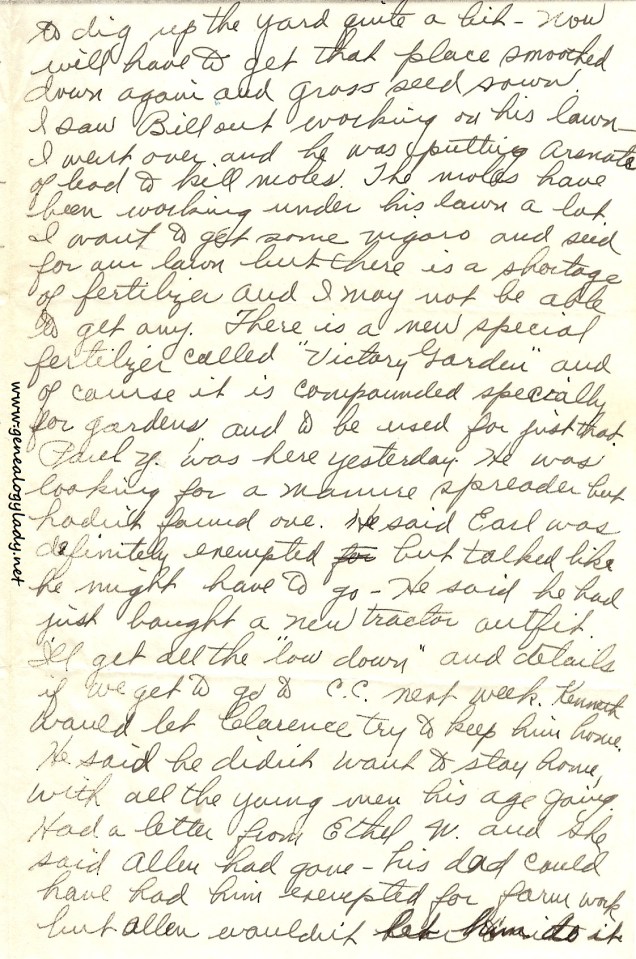 to dig up the yard quite a bit - now
will have to get that place smoothed
down again and grass seed sown.
I saw Bill out working on his lawn -
I went over and he was putting Arsnate
of lead to kill moles. The moles have
been working under his lawn a lot
I want to get some vigaro and seed
for our lawn but there is a shortage
of fertilizer and I may not be able
to get any. There is a new special
fertilizer called "Victory Garden" and
of course it is compounded specially
for gardens and to be used for just that.
Paul Y. was here yesterday. He was
looking for a manure spreader but
hadn't found one. He said Earl was
definitely exempted for but talked like
he might have to go - He said he had
just bought a new tractor outfit.
I'll get all the "low down" and details
if we get to go to C.C. next week. Kenneth
would let Clarence try to keep him home.
He said he didn't want to stay home,
with all the young men his age going.
Had a letter from Ethel W. and she
said Allen had gone - his dad could
have had him exempted for farm work
but Allen wouldn't let him do it
www.genealogylady.net